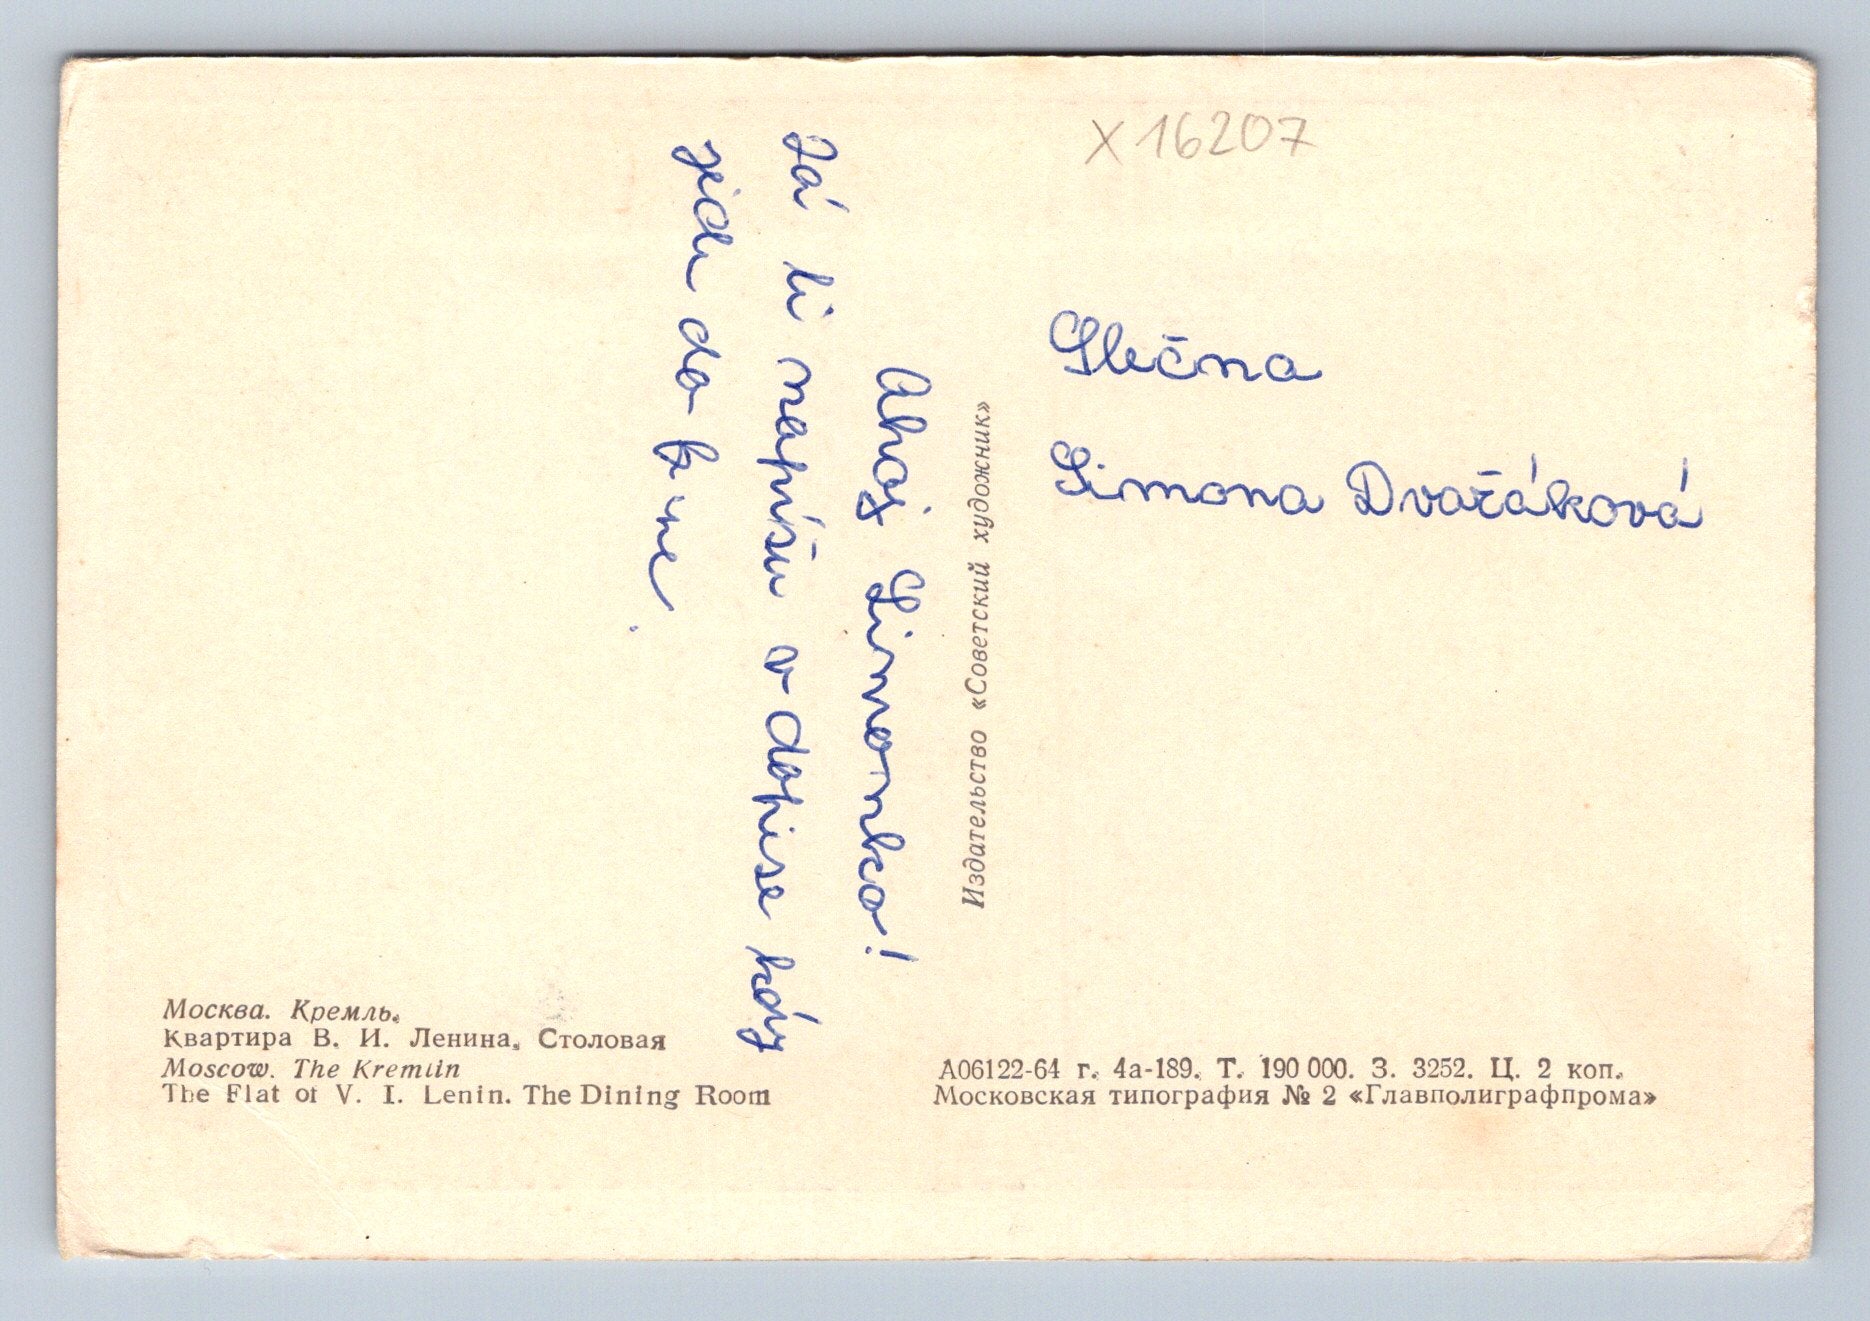 X 16207
Slečna
Simona Dvořáková
Ahoj Simonko!
Já ti napíšu v dopise kdy
zjdu do kine.
Издательство «Советский художник»
Москва. Кремль.
Квартира В. И. Ленина. Столовая
Moscow. The Kremlin
The Flat of V. I. Lenin. The Dining Room
А06122-64 г. 4а-189. Т. 190 000. З. 3252. Ц. 2 коп.
Московская типография № 2 «Главполиграфпрома»